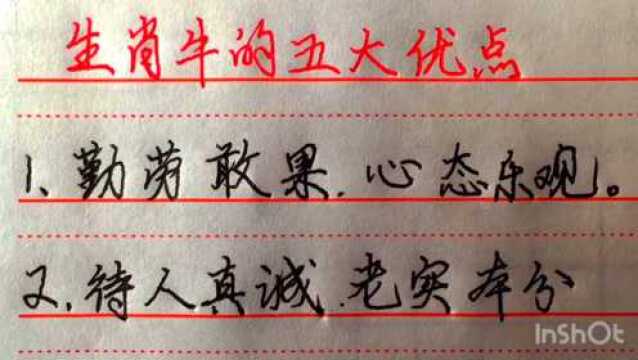 生肖牛的五大优点
1、勤劳敢果.心态乐观。
2.待人真诚.老实本分
InShOt